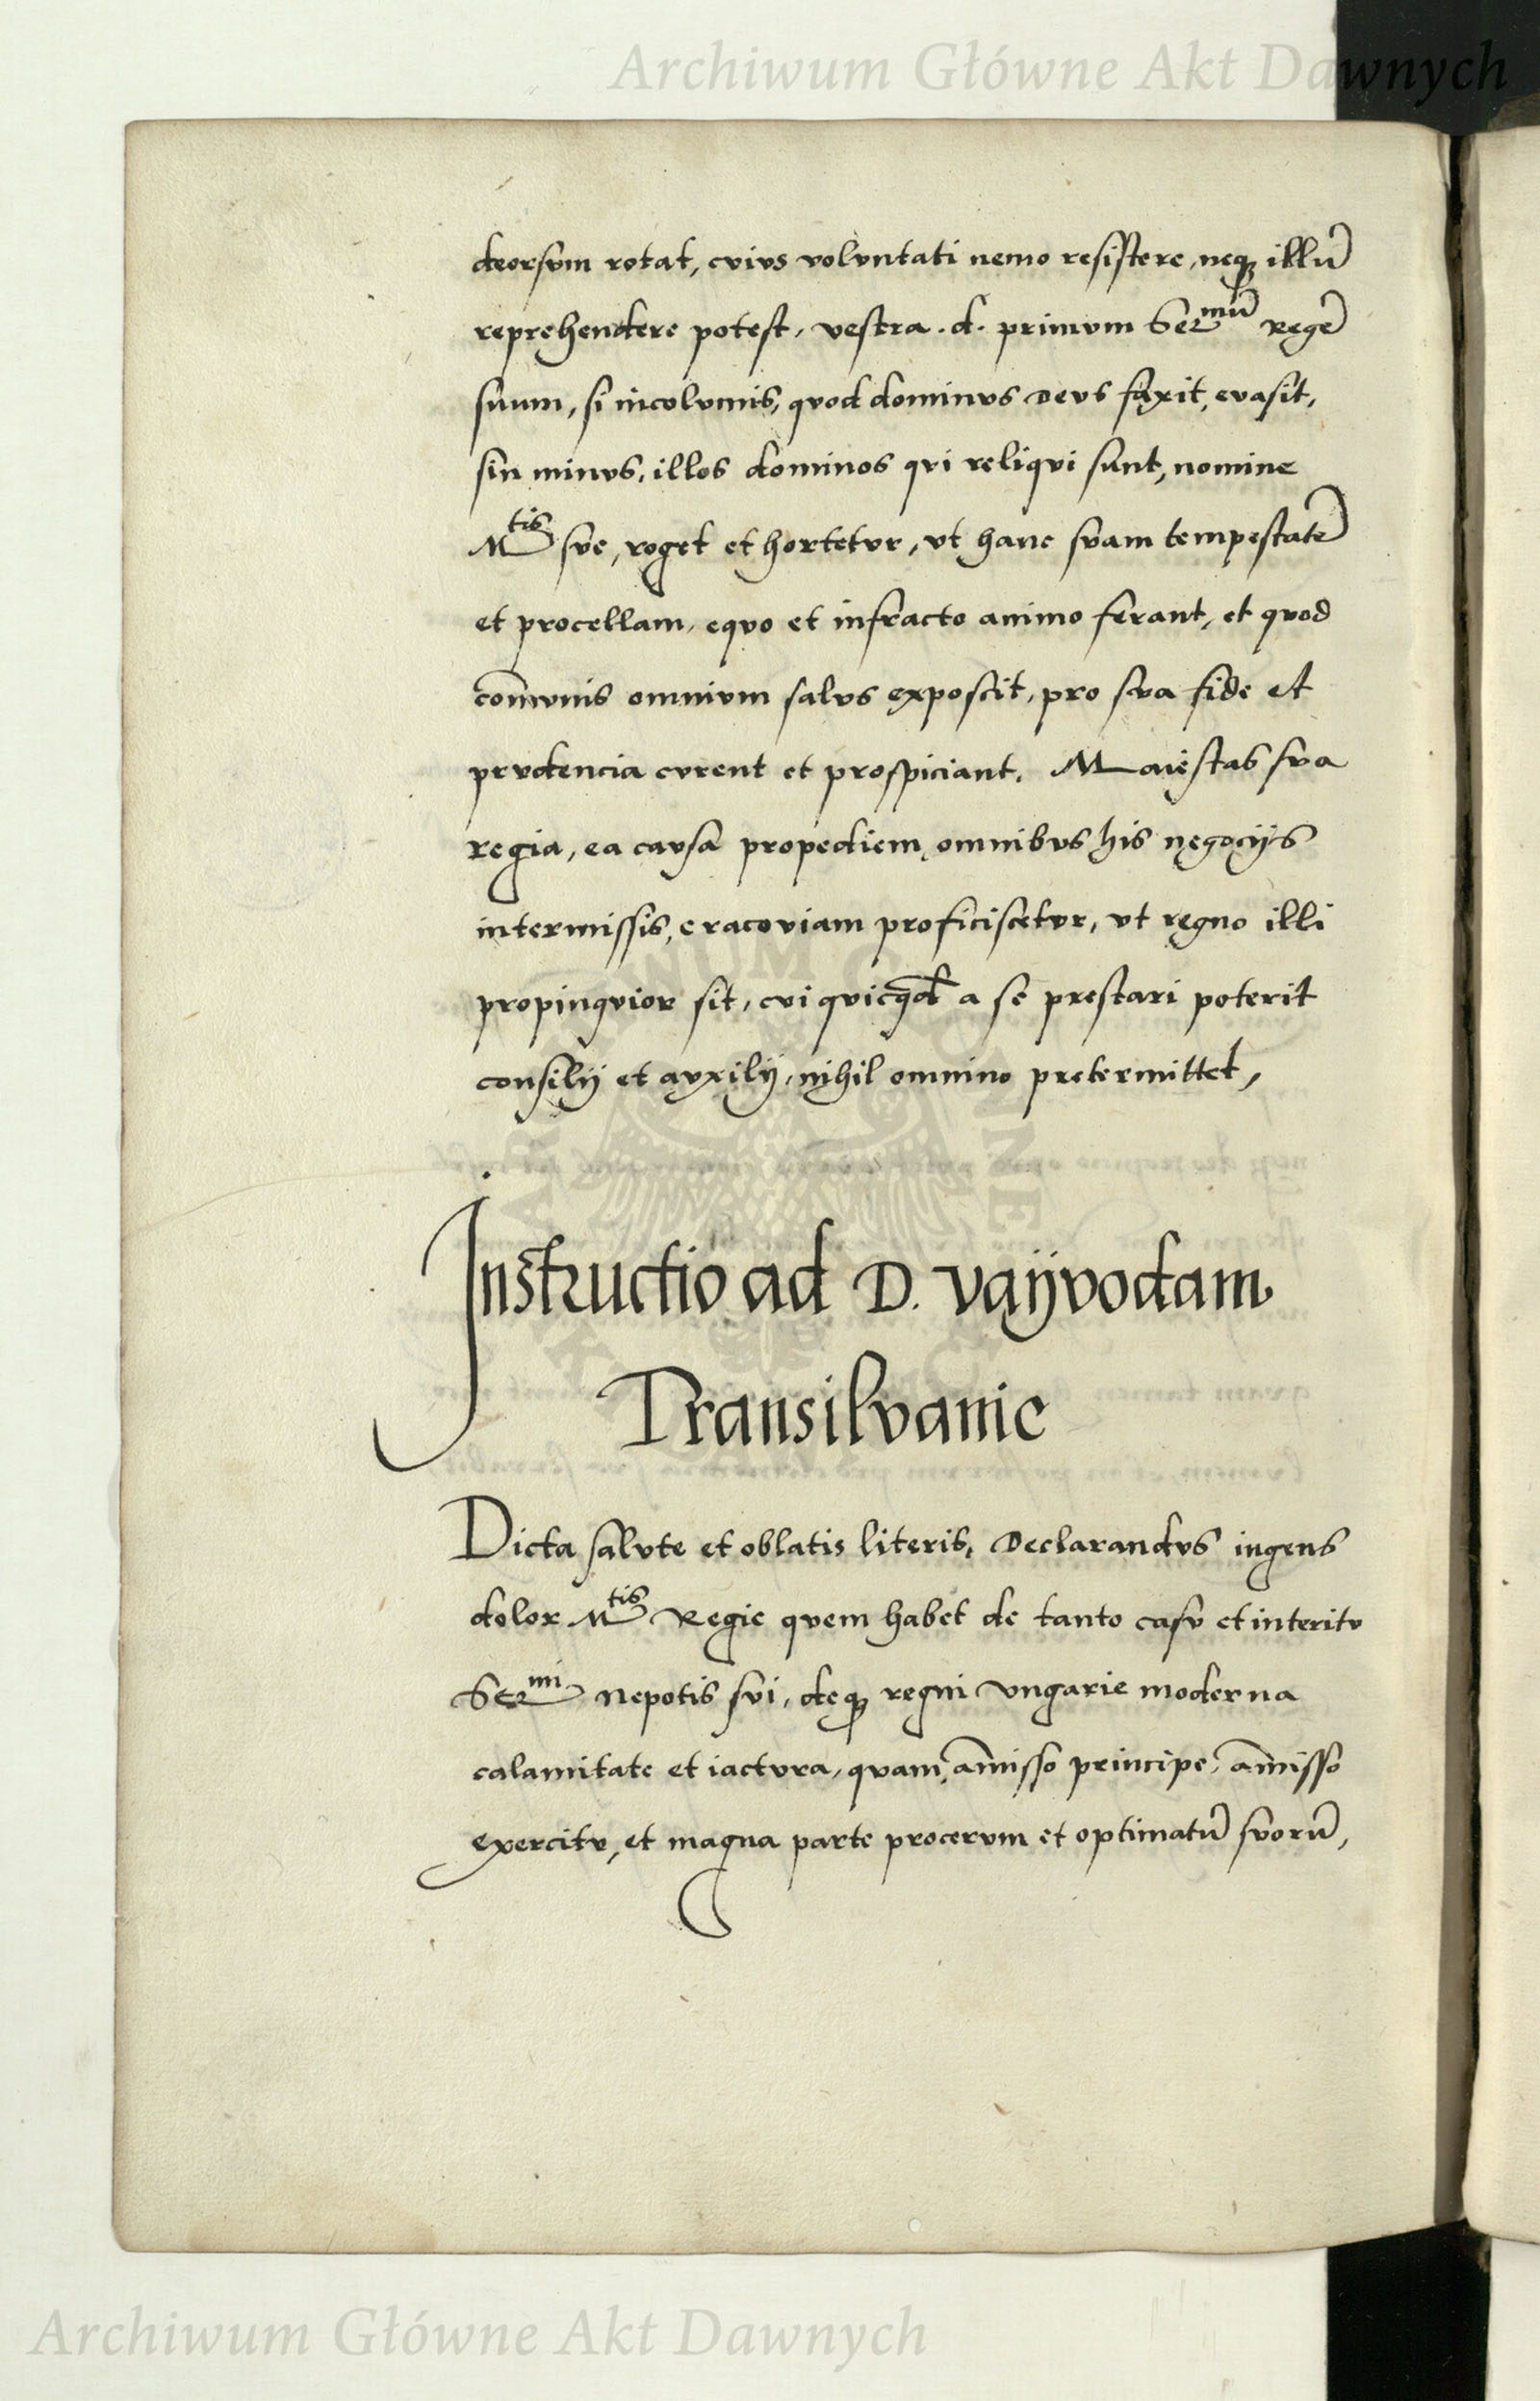 Archiwum Główne Akt Dawnych
deorsvm rotat, cvivs volvntati nemo resistere, neqꝫ illũ
reprehendere potest, vestra .d. primvm Serᵐᵘ̃ Regẽ
suum, si incolvmis, qvod dominvs Devs faxit, evasit,
sin minvs, illos dominos qvi reliqvi sunt, nomine
Mᵗⁱˢ sve, roget et hortetvr, vt hanc svam tempestatẽ
et procellam, eqvo et infracto animo ferant, et qvod
com̃vnis omnivm salvs exposcit, pro sva fide et
prvdencia cvrent et prospiciant. Maiestas sva
regia, ea cavsa propediem omnibvs his negocijs
intermissis, cracoviam proficiscetvr, vt regno illi
propinqvior sit, cvi qvicqd̃ a se prestari poterit
consilij et avxilij, nihil omnino pretermittet,
Instructio ad D. vaijvodam
Transilvanie
Dicta salvte et oblatis literis, Declarandvs ingens
dolor Mᵗⁱˢ Regie qvem habet de tanto casv et interitv
Serᵐⁱ Nepotis svi, deqꝫ regni vngarie moderna
calamitate et iactvra, qvam, am̃isso principe, am̃isso
exercitv, et magna parte procervm et optimatũ svorũ,
ARCHIWUM GŁÓWNE AKT DAWNYCH
Archiwum Główne Akt Dawnych